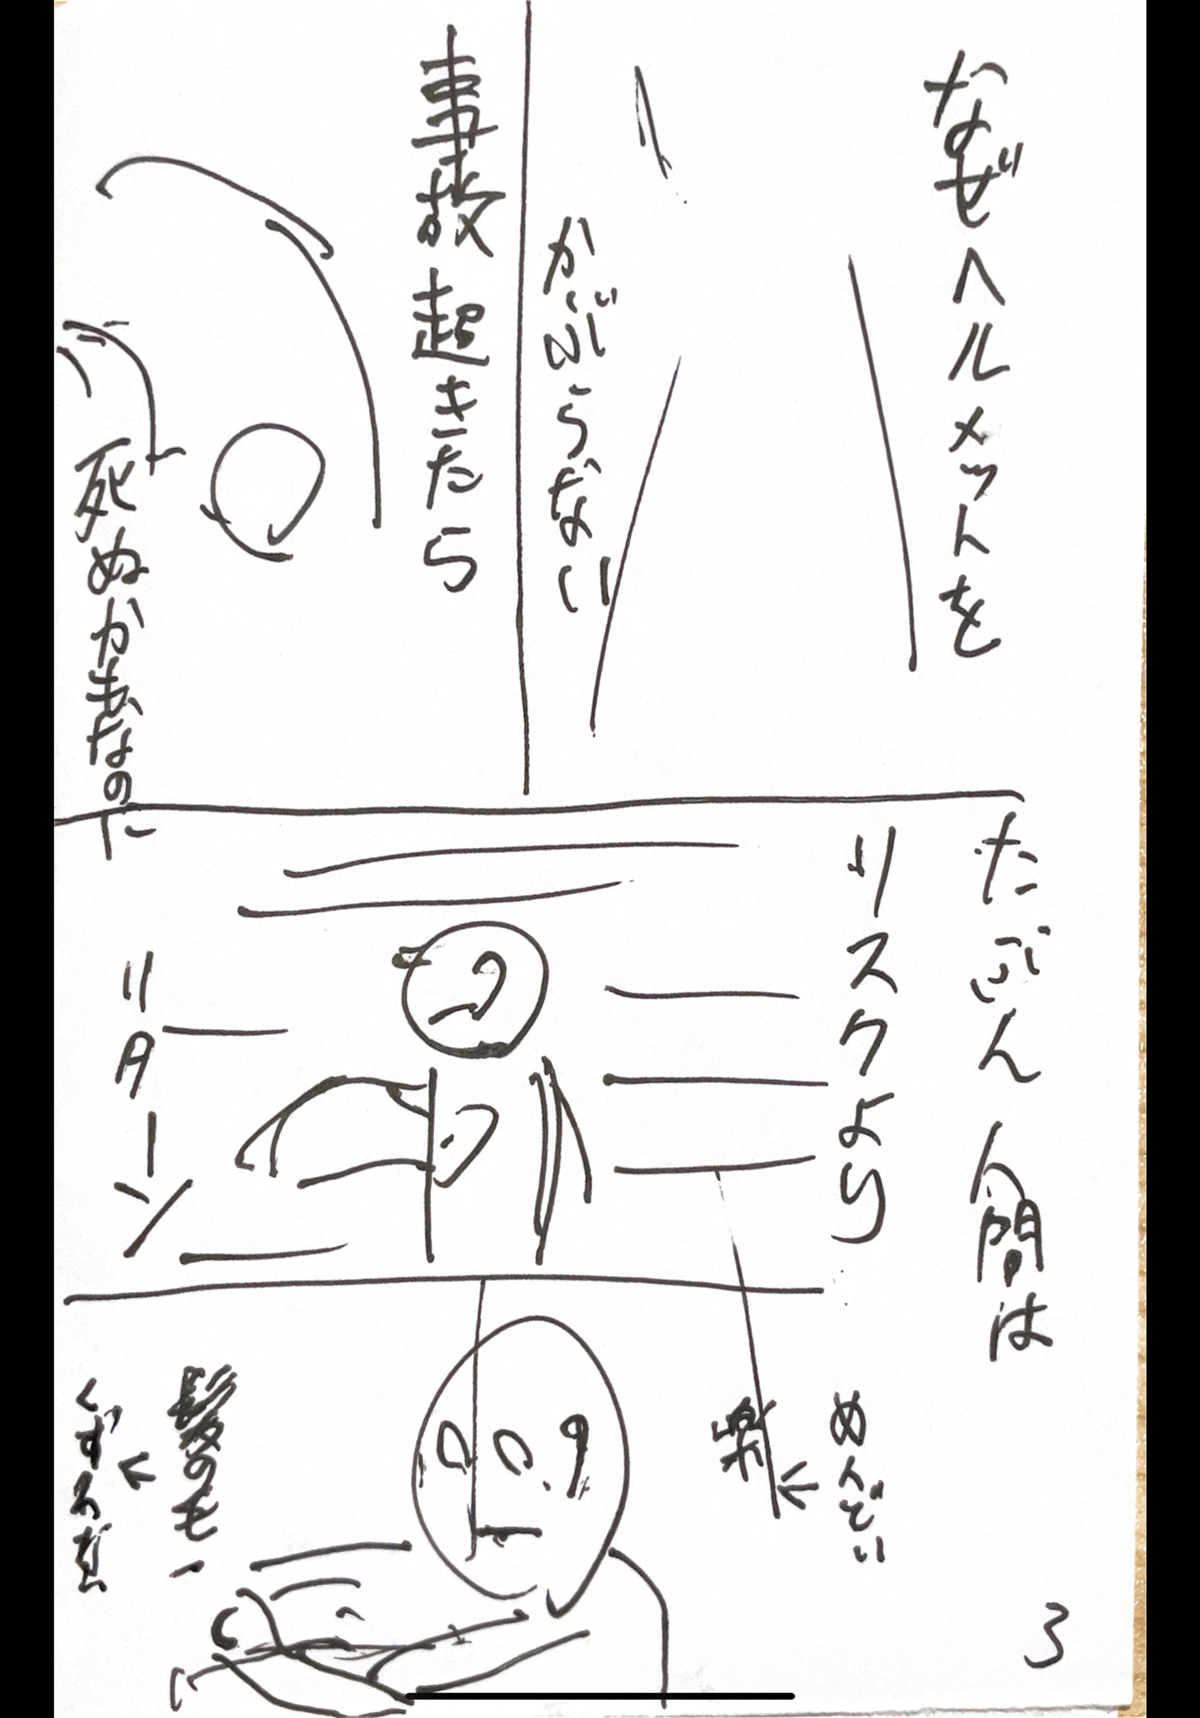 なぜヘルメットを
かぶらない
事故起きたら
死ぬかもなのに
たぶん人間は
リスクより
リターン
めんどい
↓
楽
髪の毛
↓
3